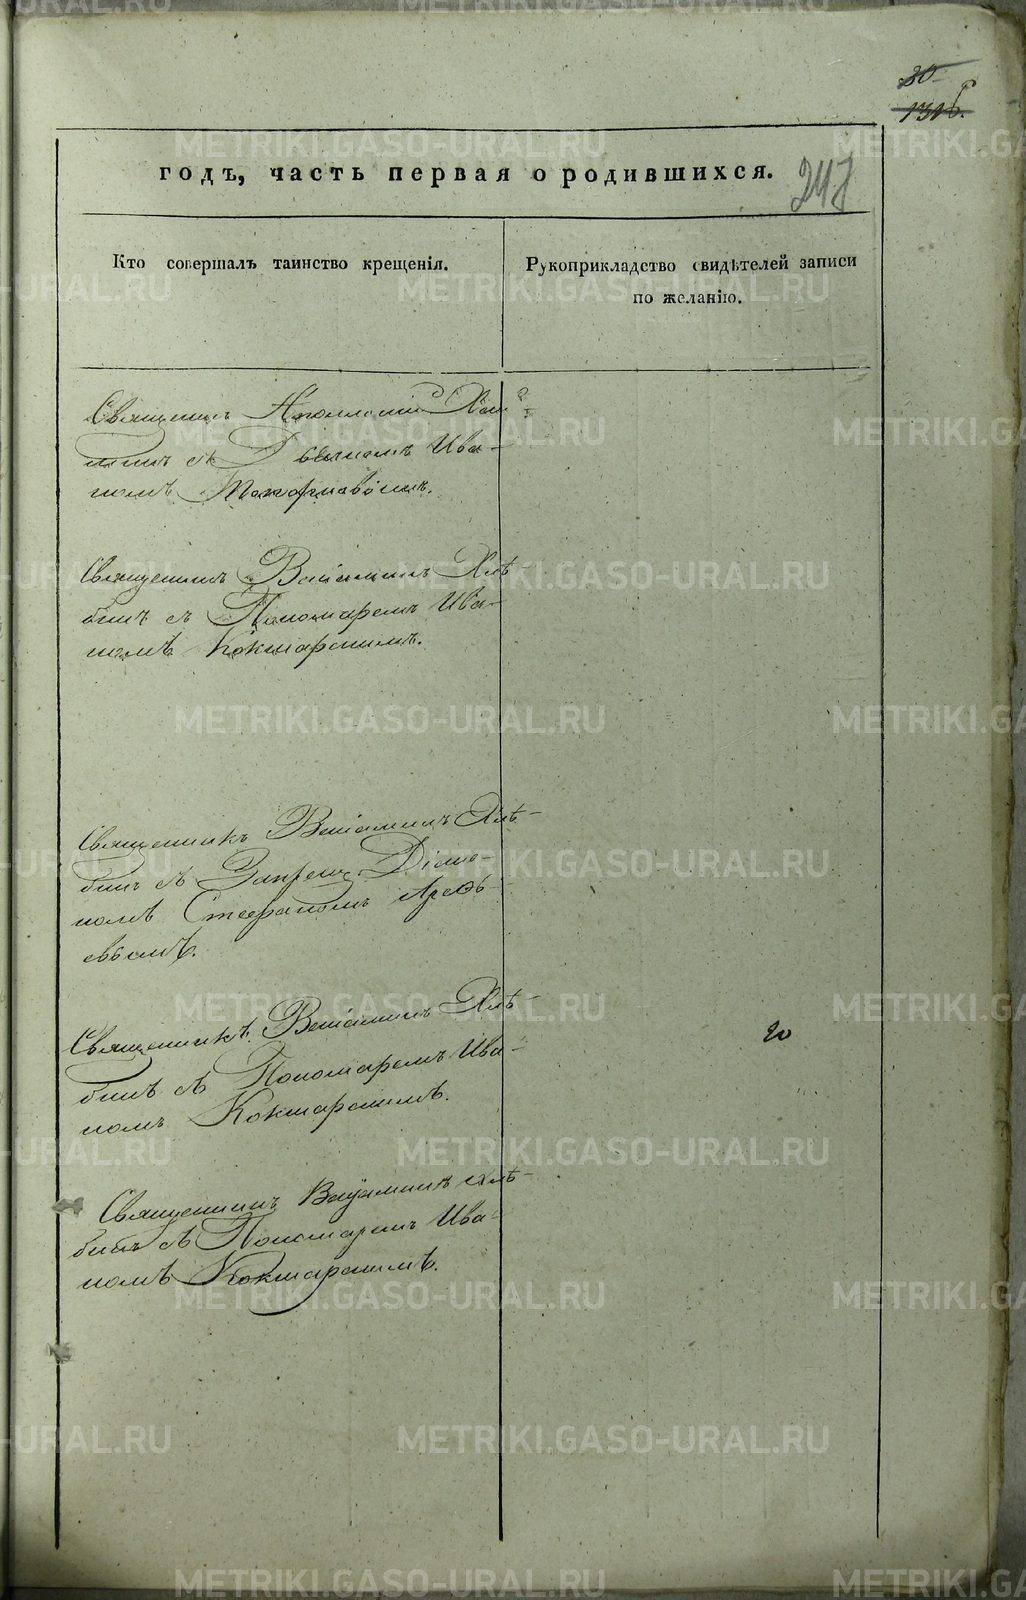 80
годъ, часть первая о родившихся.
247
Кто совершалъ таинство крещенія.
Рукоприкладство свидѣтелей записи
по желанію.
Священникъ Аполлоній
съ Дьячкомъ Ива-
номъ
Священникъ Веніаминъ Хлѣ-
бинъ съ Пономаремъ Ива-
номъ Кокшарскимъ.
Священникъ Веніаминъ Хлѣ-
бинъ съ Запрещ. Діако-
номъ Стефаномъ Арефь-
евымъ.
Священникъ Веніаминъ Хлѣ-
бинъ съ Пономаремъ Ива-
номъ Кокшарскимъ.
20
Священникъ Веніаминъ Хлѣ-
бинъ съ Пономаремъ Ива-
номъ Кокшарскимъ.
METRIKI.GASO-URAL.RU